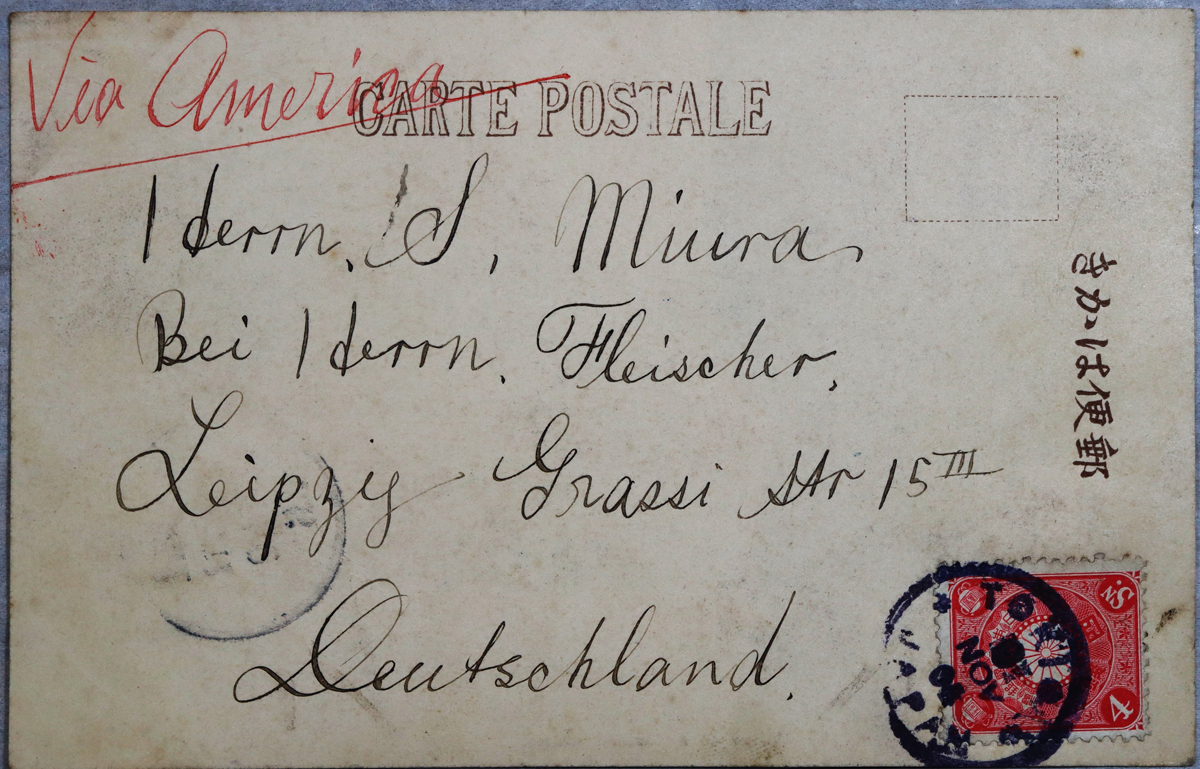 Via America
CARTE POSTALE
Herrn, S, Miura,
Bei Herrn, Fleischer,
Leipzig Grassi Str 15 III
Deutschland.
きかは便郵
4 Sn.
NOV
JAPAN